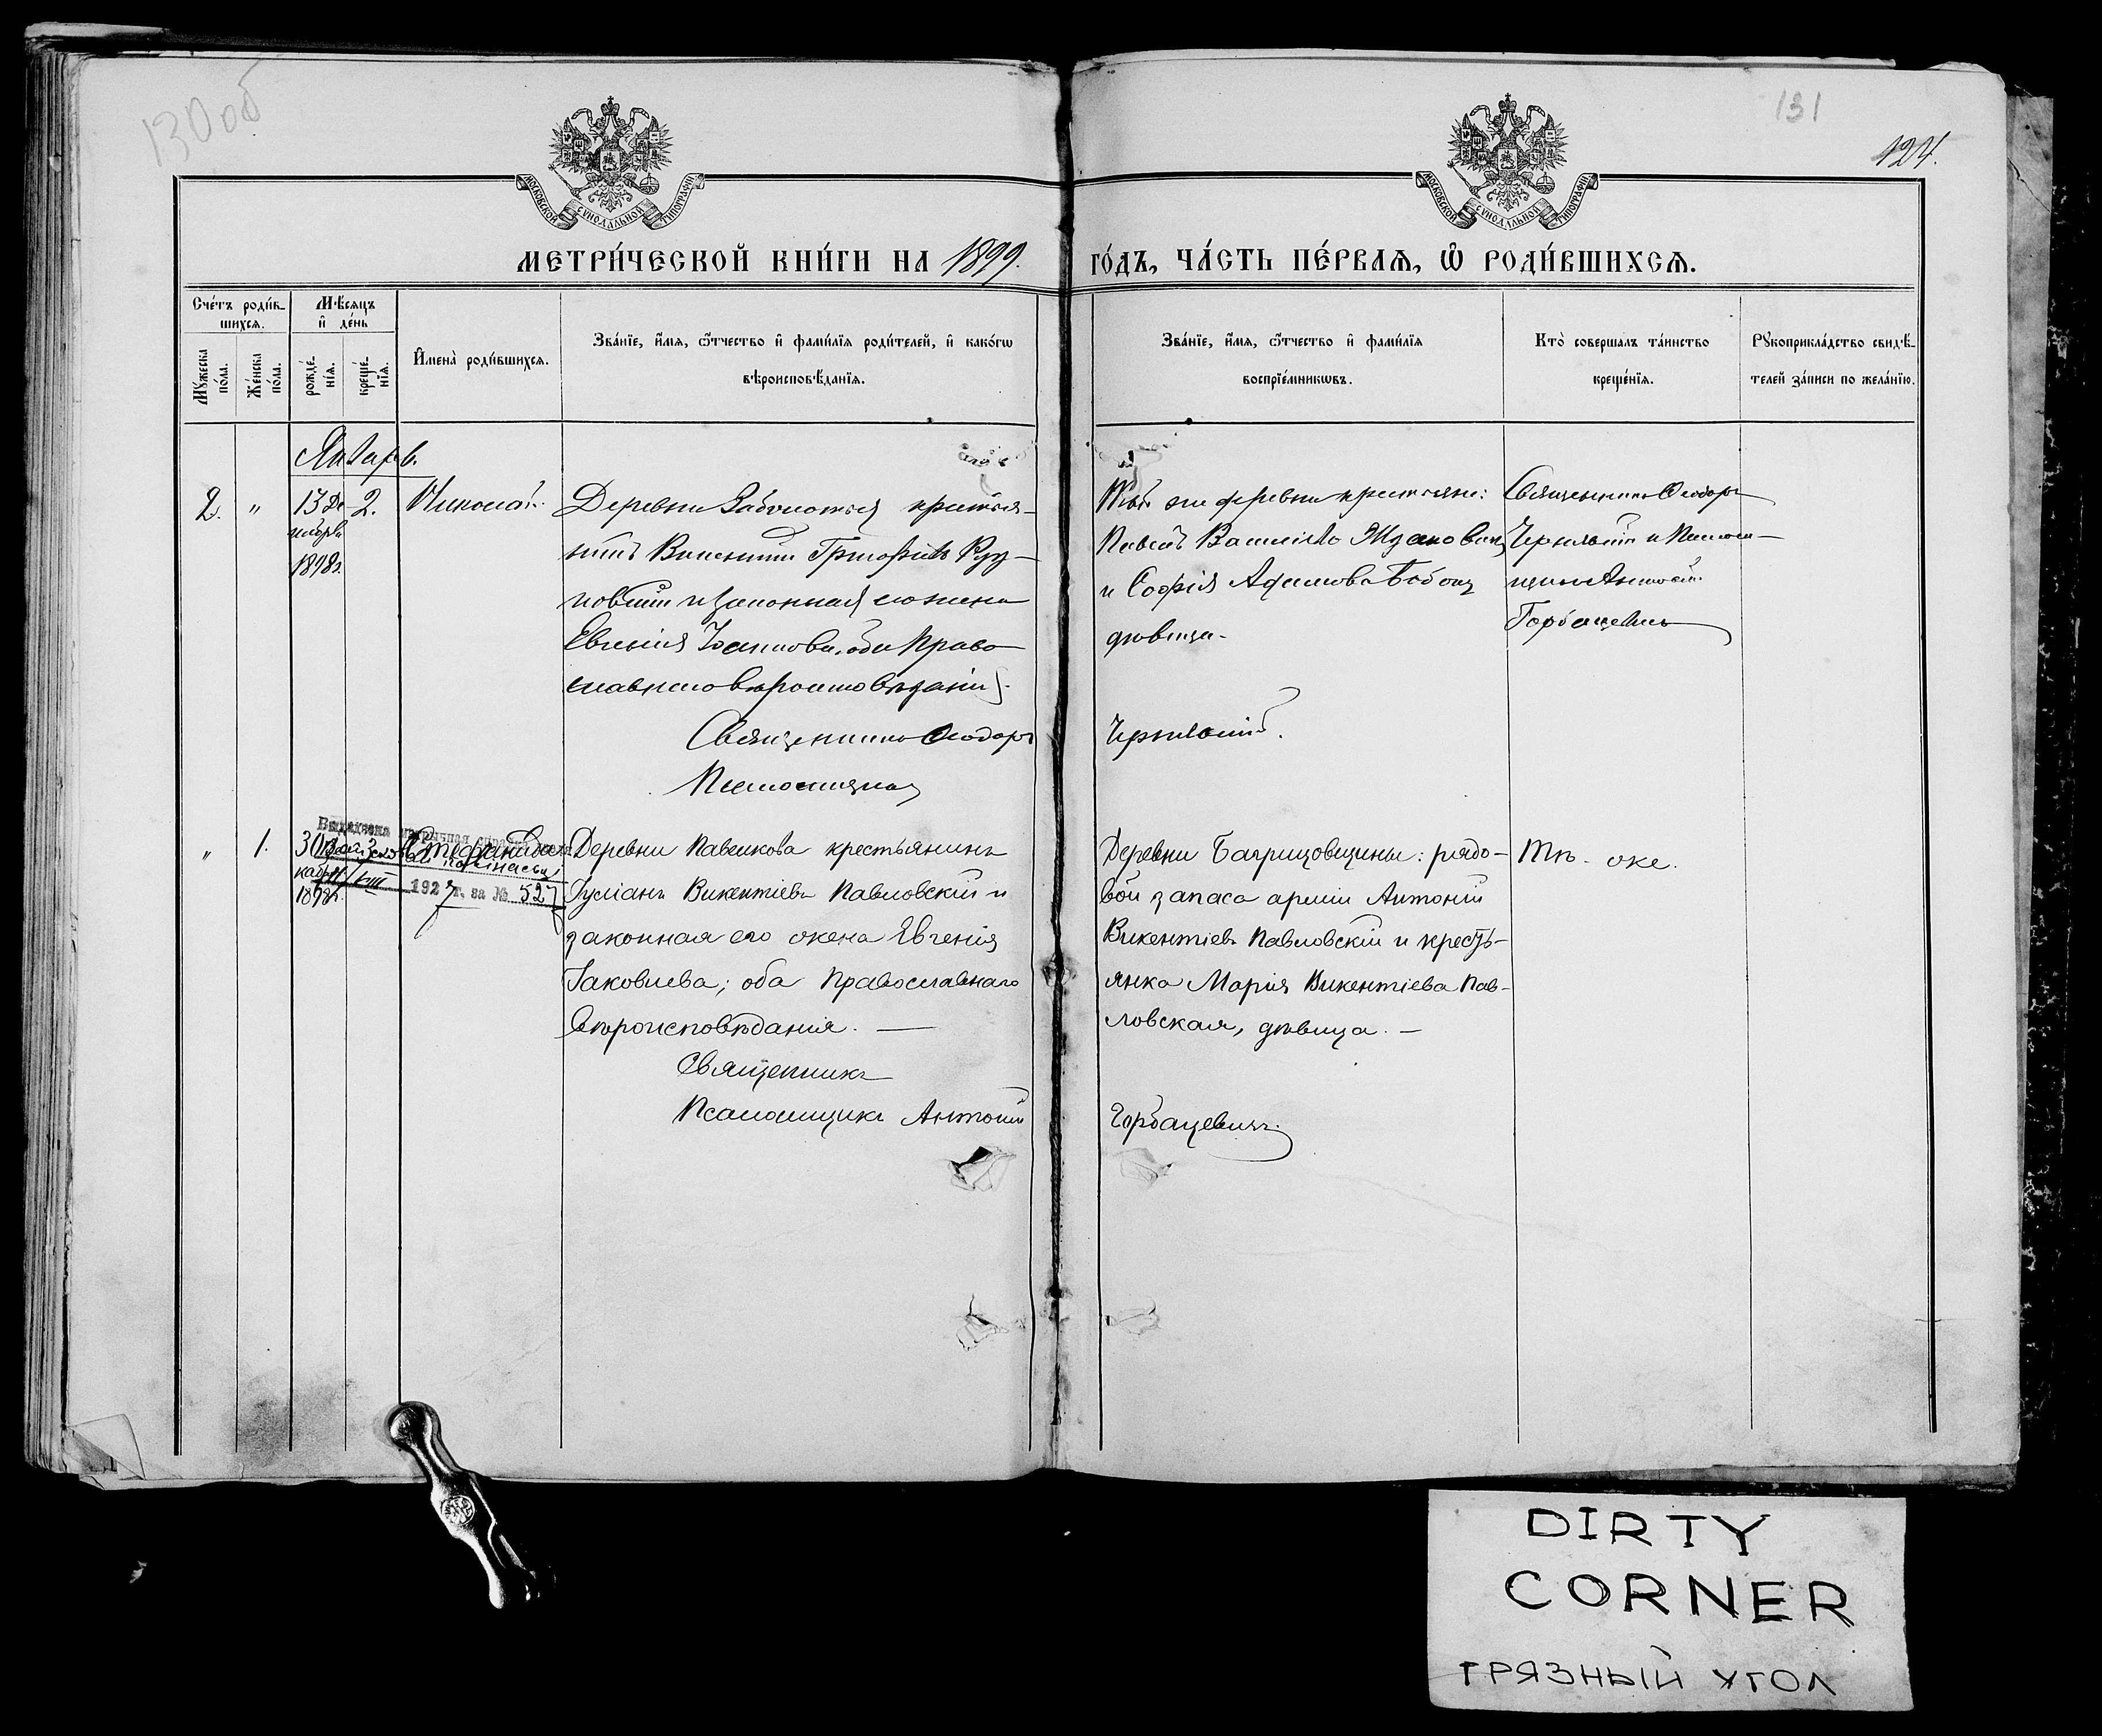 130 об
131
124.
МОСКОВСКОЙ СѴНОДАЛЬНОЙ ТИПОГРАФІИ
МОСКОВСКОЙ СѴНОДАЛЬНОЙ ТИПОГРАФІИ
МЕТРИ́ЧЕСКОЙ КНИ́ГИ НА 1899.
ГО́ДЪ, ЧА́СТЬ ПЕ́РВАѦ, Ѽ РОДИ́ВШИХСѦ.
Сче́тъ роди́в-
шихсѧ.
Мѣсѧцъ
и҆ де́нь
Мꙋ́жеска
по́ла.
Же́нска
по́ла.
рожде́-
нїѧ.
креще́-
нїѧ.
И҆мена̀ роди́вшихсѧ.
Зва́нїе, и҆́мѧ, ѻ҆́тчество и҆ фами́лїѧ роди́телей, и҆ како́гѡ
вѣроисповѣ́данїѧ.
Зва́нїе, и҆́мѧ, ѻ҆́тчество и҆ фами́лїѧ
воспрїе́мникѡвъ.
Кто̀ соверша́лъ та́инство
креще́нїѧ.
Рꙋкоприкла́дство свидѣ́-
телей за́писи по жела́нїю.
Январь.
2. " 13 Де
кабря
1898г.
2. Николай.
Деревни Заболотья крестья-
нинъ Викентій Григоріевъ
и законная его жена
Евгенія оба Право
славнаго вѣроисповѣданія.
Священникъ Ѳеодоръ
Псаломщикъ
Той же деревни крестьяне:
Павелъ Васильевъ Ждановичъ
и Софія Адамова
дѣвица.
Священникъ Ѳеодоръ
и Псалом-
щикъ Антоній
Горбацевичъ
" 1. 30 Де
кабря
1898г.
Стефанида
Выдадзена метрычная
192 7 г. за № 527
Деревни Павликова крестьянинъ
Іуліанъ Викентіевъ Павловскій и
законная его жена Евгенія
Іаковлева; оба Православнаго
вѣроисповѣдания. —
Священникъ
Псаломщикъ Антоній
Деревни Багрицовщины: рядо-
вой запаса арміи Антоній
Викентіевъ Павловскій и кресть-
янка Марія Викентіева Пав-
ловская, дѣвица. —
Горбацевичъ.
Тѣ-же.
DIRTY
CORNER
ГРЯЗНЫЙ УГОЛ